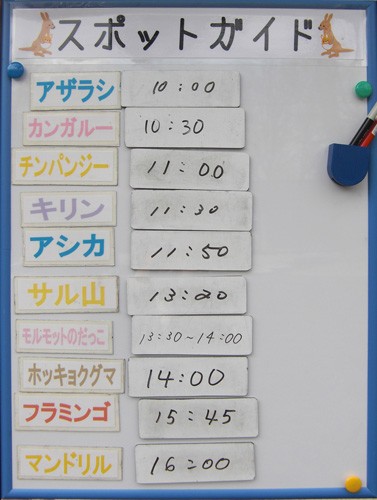 スポットガイド
アザラシ 10:00
カンガルー 10:30
チンパンジー 11:00
キリン 11:30
アシカ 11:50
サル山 13:20
モルモットのだっこ 13:30~14:00
ホッキョクグマ 14:00
フラミンゴ 15:45
マンドリル 16:00